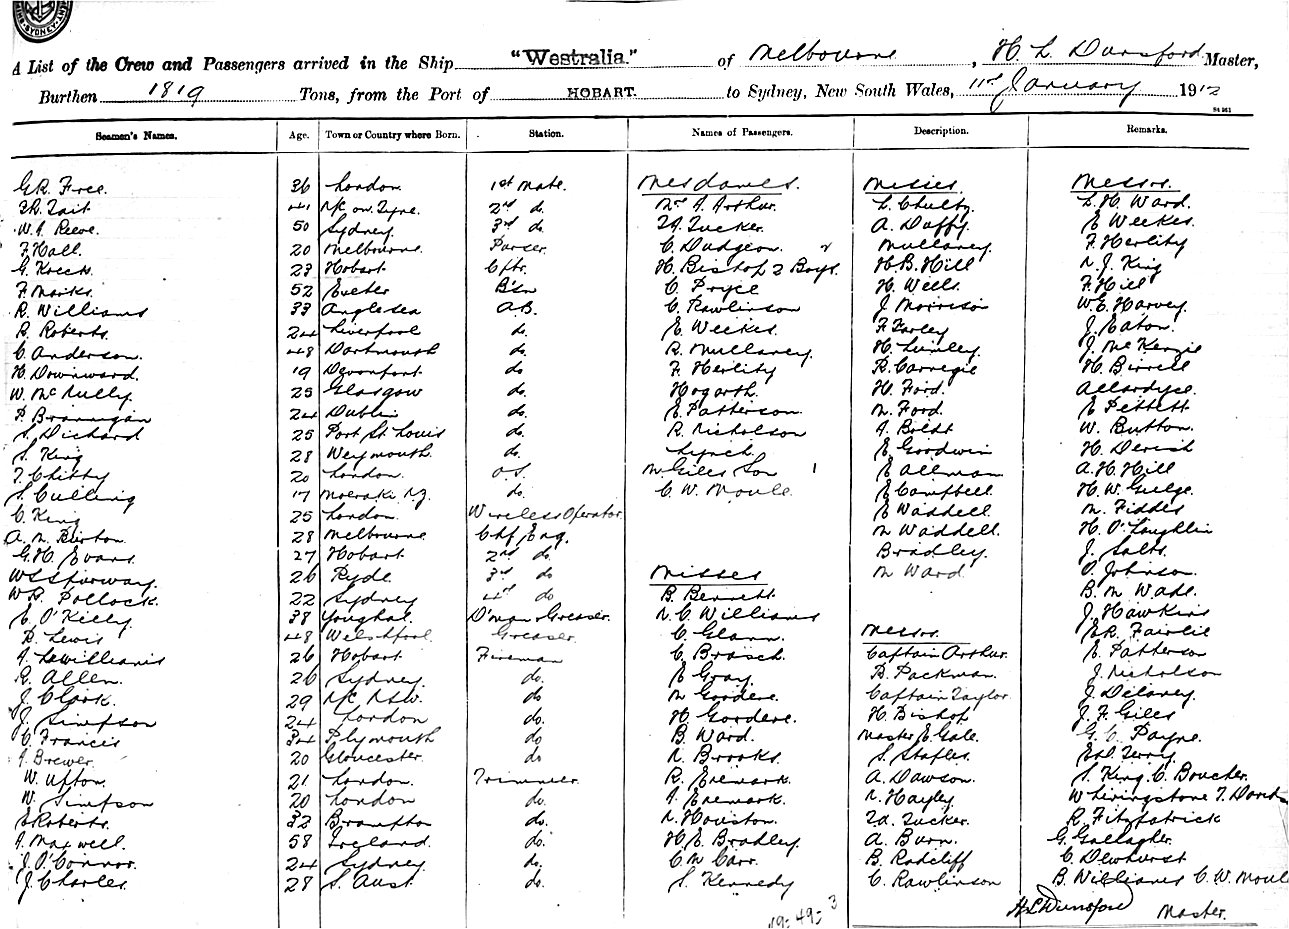 SYDNEY
A List of the Crew and Passengers arrived in the Ship "Westralia." of Melbourne, H. L. Dunsford Master,
Burthen 1819 Tons, from the Port of HOBART. to Sydney, New South Wales, January 1912
Seamen's Names. Age. Town or Country where Born. Station. Names of Passengers. Description. Remarks.
G.R. Free. 36 London 1st Mate. Mesdames. Misses. Messrs.
Tait 41 N/C on Tyne. 2nd do. A. Arthur. L. Chulty L. H. Ward.
W. A. Reeve. 50 Sydney. 3rd do. Tucker. A. Duffy. E Weekes.
F. Hall. 20 Melbourne. Purser. C. Dudgeon. Mullaney. F. Herlity
G. Kreck. 23 Hobart H. Bishop 2 Boys. H. B. Hill J. King
F. Marks. 52 Exeter B'sn C. Pryce H. Wells. F. Hill
R. Williams 33 Anglesea A.B. C. Rawlinson J. Morrison W. E. Harvey.
R. Roberts. 24 Liverpool do. E. Weekes. F. Farley J. Eaton.
C. Anderson. 48 Dartmouth do. R. Mullaney. H. Lumley. J. McKenzie
H. Downward. 19 Devonport do F. Herlity R. Carnegie H. Birrell
W. McNully. 25 Glasgow do. Hogarth. H. Ford. Allardyce.
P. Brannigan 24 Dublin do. E Patterson. N. Ford. E Pettett.
S. Dichard 25 Port St Louis do. R. Nicholson A. Boldt W. Button.
S. King 28 Weymouth. do. Lynch. E Goodwin H. Derish
T. Chitty 20 London. O.S. N. Giles Son 1 E Allman A. H. Hill
S. Culling 17 Moeraki N.Z. do. C. W. Moule. E Campbell. H. W. Gulge.
C. King 25 London. Wireless Operator. E Waddell N. Fiddes
A. N. Burton. 28 Melbourne Chf Eng. N Waddell. H. O'Laughlin
G. H. Evans. 27 Hobart 2nd do. Bradley. J. Salts.
W S Spurway. 26 Ryde. 3rd do Misses N Ward. O. Johnson.
W R. Pollock. 22 Sydney 4th do B. Bennett. B. M Wade.
E. O'Kielly. 38 Youghal. D'man Greaser. N. C. Williams J. Hawkins
D. Lewis 48 Welshpool. Greaser. C. Glann. Messrs. E.R. Fairlie
A. Lewilliams 26 Hobart Fireman C. Brasch. Captain Arthur. E. Patterson
R. Allen. 26 Sydney. do. E Gray. B. Packman. J. Nicholson
J. Clark. 29 N/C N.S.W. do N Goodere. Captain Taylor. J. Delaney.
J. Simpson 24 London do. H. Goodere. H. Bishop J. F. Giles
C. Francis 34 Plymouth do B. Ward. Master E Gale. G. V. Payne.
A. Brewer. 20 Gloucester. do N. Brooks. S. Staples. Terry.
W. Upton. 21 London. Trimmer. R. Enemark. A. Dawson. S. King. C. Boucher.
W. Simpson 20 London do. A. Enemark. N. Hayley W Livingstone
E Roberts. 32 Brampton do. N. Houston. Tucker. R. Fitzpatrick
A. Maxwell. 58 Ireland. do. H. E. Bradley. A. Burn. G. Gallagher.
J. O'Connor. 24 Sydney. do. C. N Carr. B. Radcliff C. Dewhurst
J. Charles. 28 S. Aust do. S. Kennedy C. Rawlinson B. Williams C. W. Moul
H. L. Dunsford Master.
19: 49: 3